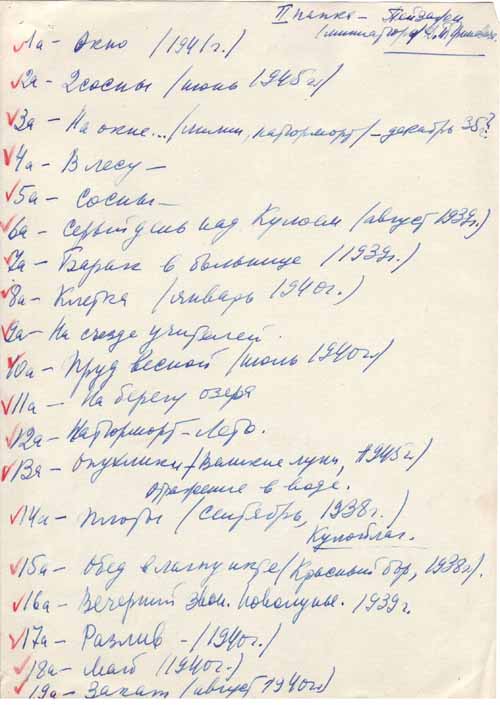 II папка – Пейзажи
(миниатюры
1а – Окно (1941 г.)
2а – 2 сосны (июнь 1945 г.)
3а – На окне... (мини, натюрморт) – декабрь 35 г.?
4а – В лесу –
5а – Сосны –
6а – Серый день над Кулоем (август 1939 г.)
7а – Барак в больнице (1939 г.)
8а – Клетка (январь 1940 г.)
9а – На съезде учителей.
10а – Пруд весной (июль 1940 г.)
11а – На берегу озера
12а – Натюрморт – Лето.
13а – Опухлики (Великие Луки, 1945 г.)
отражение в воде.
14а – Плоты (сентябрь, 1938 г.)
Кулойлаг.
15а – Обед в лагпункте (Красный бор, 1938 г.)
16а – Вечерний звон. Новолунье. 1939 г.
17а – Разлив – (1940 г.)
18а – Май (1940 г.)
19а – Закат (август 1940 г.)